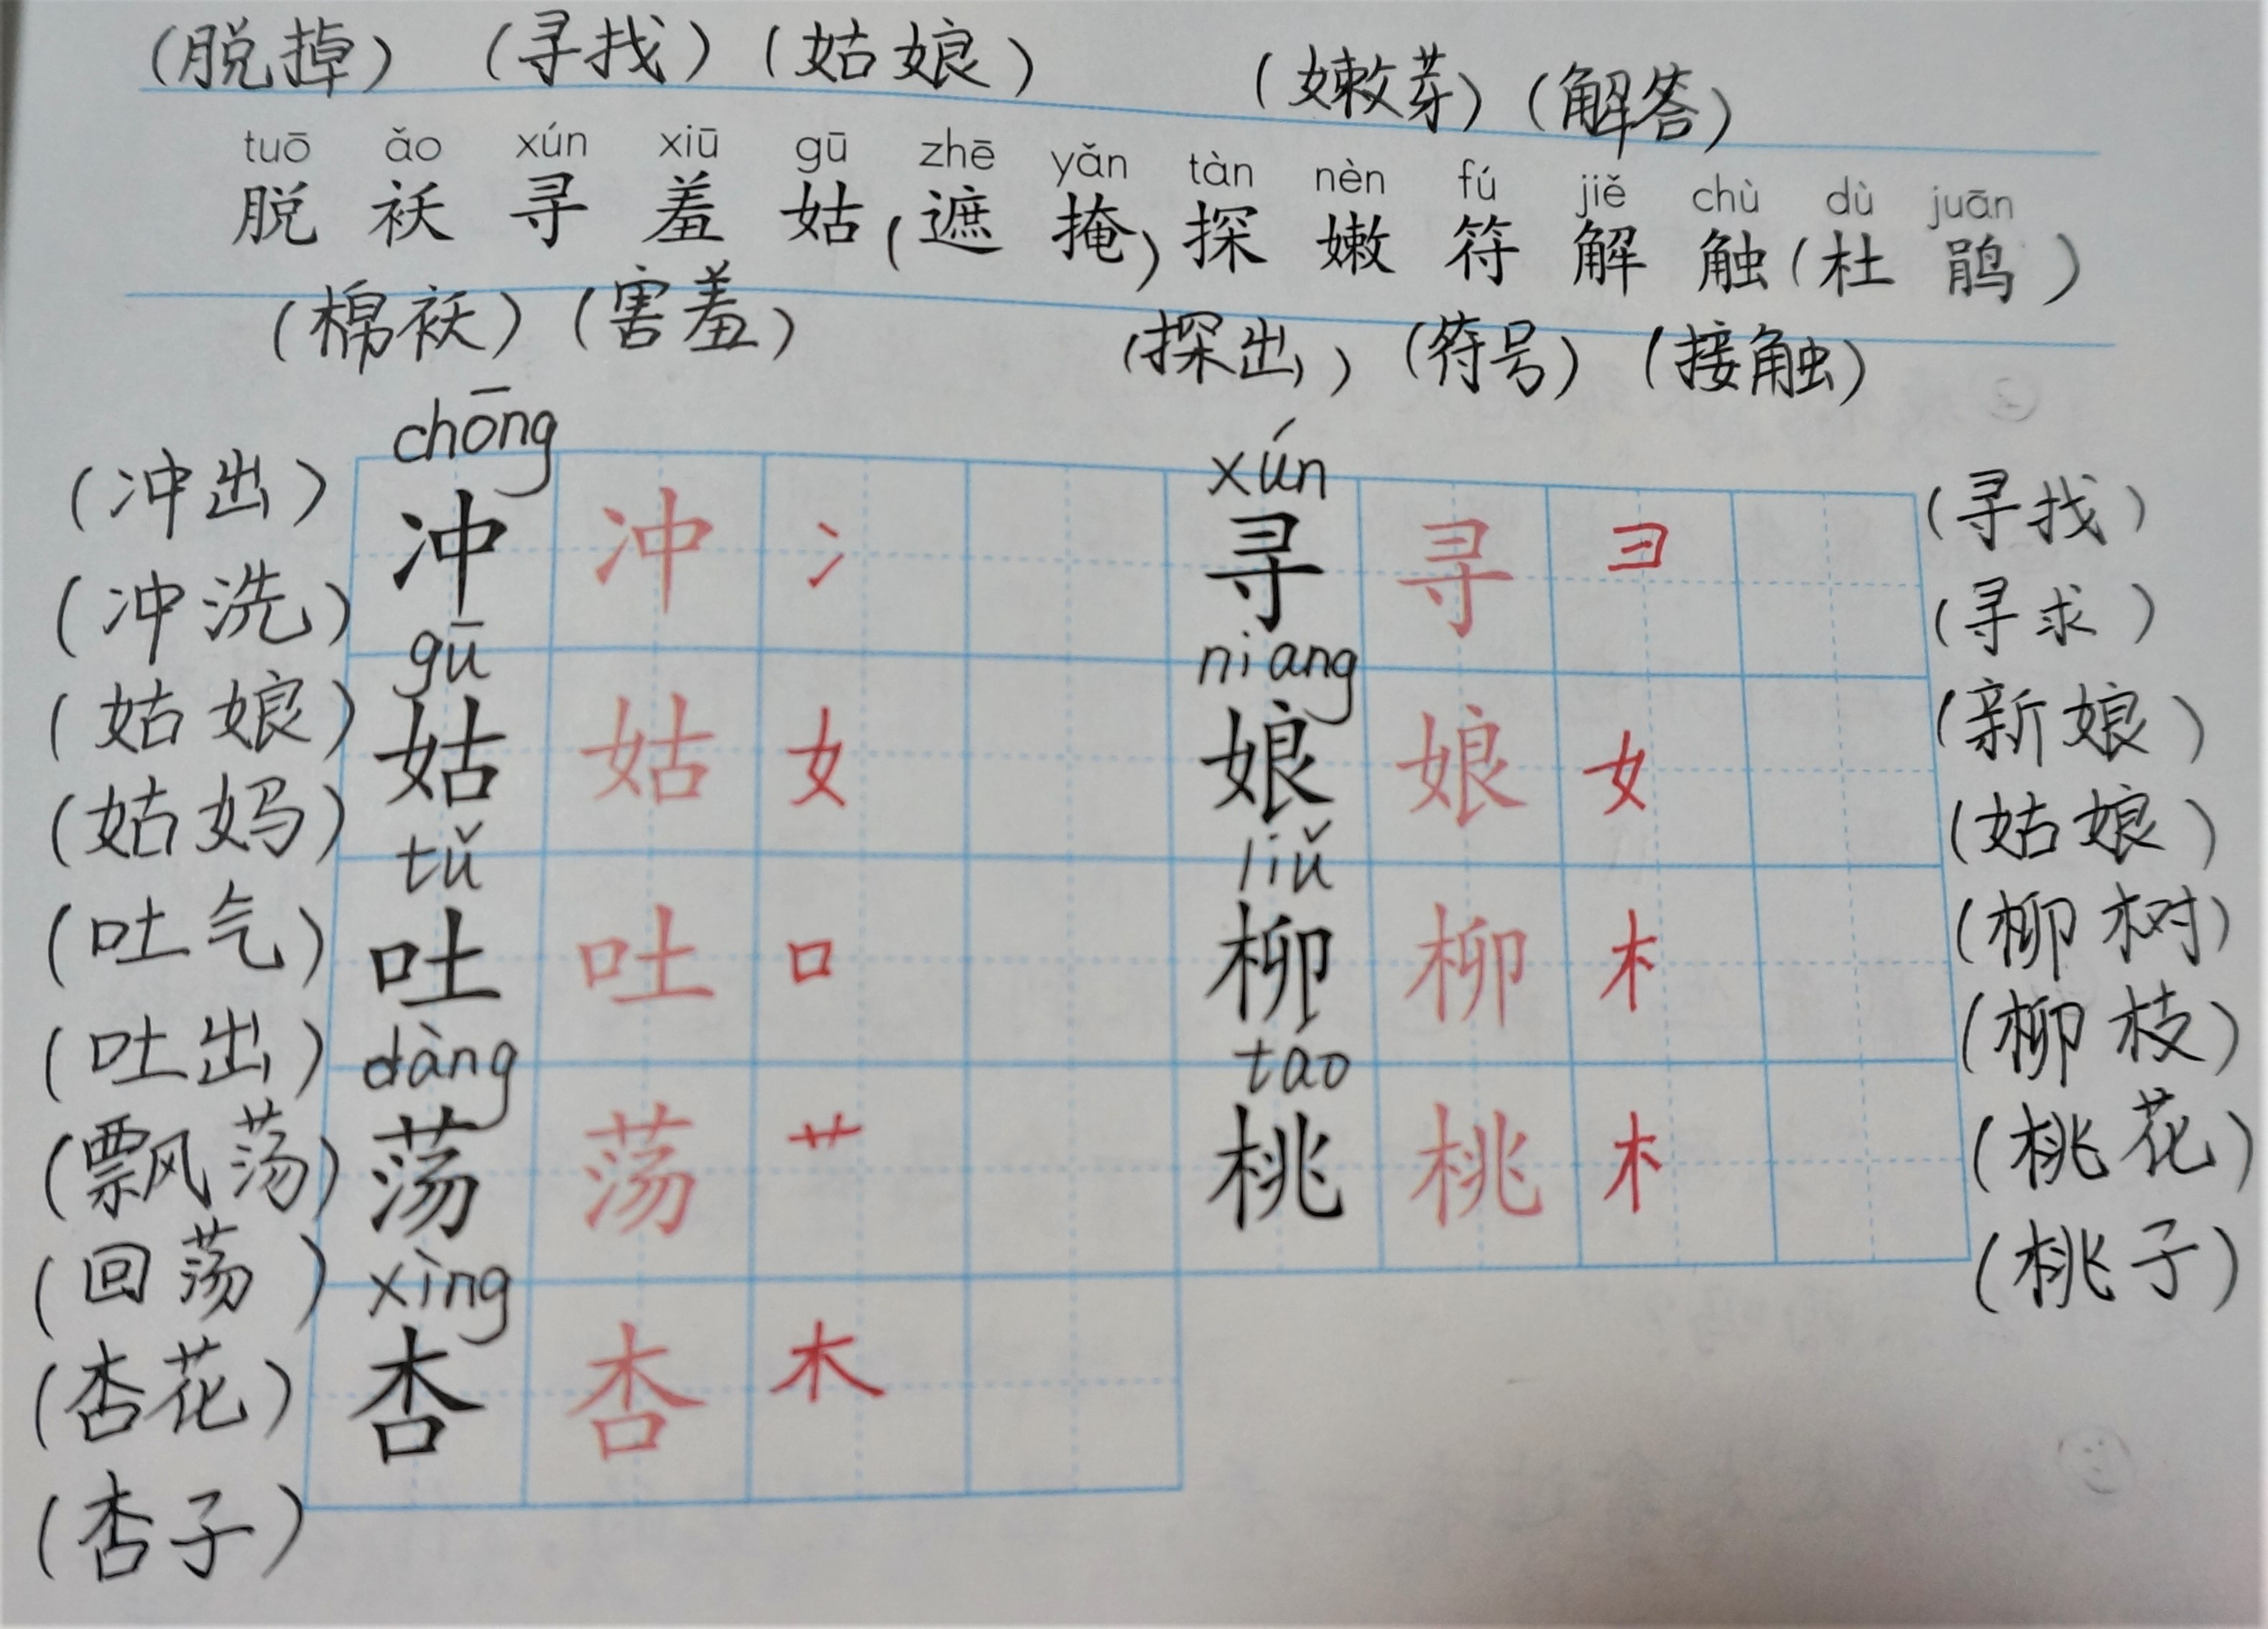 (脱掉) (寻找) (姑娘) (嫩芽) (解答)
tuō ǎo xún xiū gū zhē yǎn tàn nèn fú jiě chù dù juān
脱 袄 寻 羞 姑 (遮 掩) 探 嫩 符 解 触 (杜 鹃)
(棉袄) (害羞) (探出) (符号) (接触)
chōng xún
(冲出) 冲 冲 冫 寻 寻 彐 (寻找)
(冲洗) (寻求)
gū niang
(姑娘) 姑 姑 女 娘 娘 女 (新娘)
(姑妈) (姑娘)
tǔ liǔ
(吐气) 吐 吐 口 柳 柳 木 (柳树)
(吐出) (柳枝)
dàng táo
(飘荡) 荡 荡 艹 桃 桃 木 (桃花)
(回荡) (桃子)
xìng
(杏花) 杏 杏 木
(杏子)